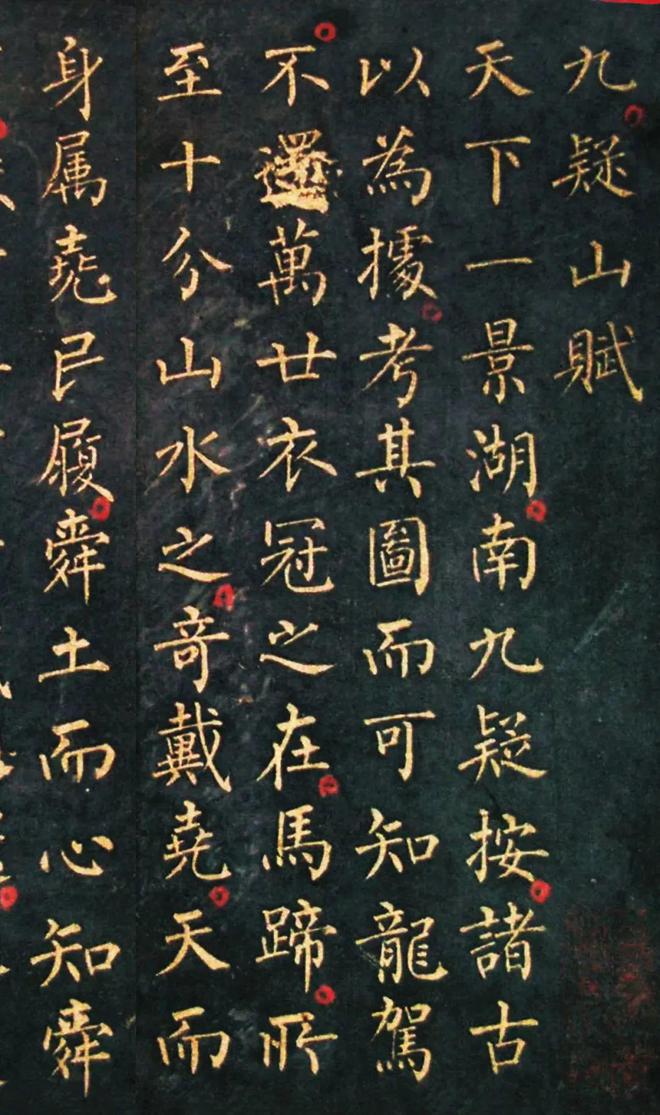 九疑山賦
天下一景湖南九疑按諸古
以為據考其圖而可知龍駕
不還萬世衣冠之在馬蹄所
至十分山水之奇戴堯天而
身属堯民履舜土而心知舜